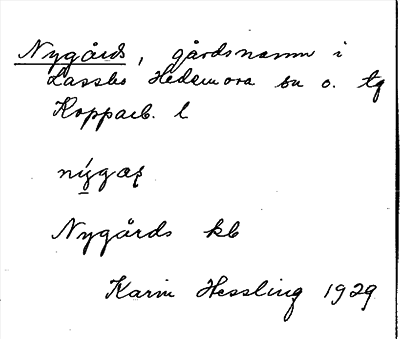 Nygårds, gårdsnamn i
Lassbo Hedemora sn o. tg
Kopparb. l
nýgaʂ
Nygårds kb
Karin Hessling 1929